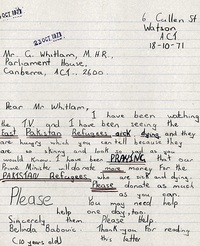 OCT 1971
23 OCT 1971
6, Cullen St
Watson
ACT
18-10-71
Mr. G. Whitlam, M.H.R.,
Parliament House,
Canberra, ACT., 2600.
Dear Mr Whitlam,
I have been watching
the T.V. and I have been seeing the
East Pakistan Refugees dying and they
are hungry which you can tell because they
are all skinny and look as you
would know. I have been PRAYING that our
Prime Minister will donate more money for the
PAKISTAN Refugees
Please donate as much
as you can.
Please You may need help
help one day, too.
Sincerely Please Help
Belinda Thank you for reading
(10 years old) this letter